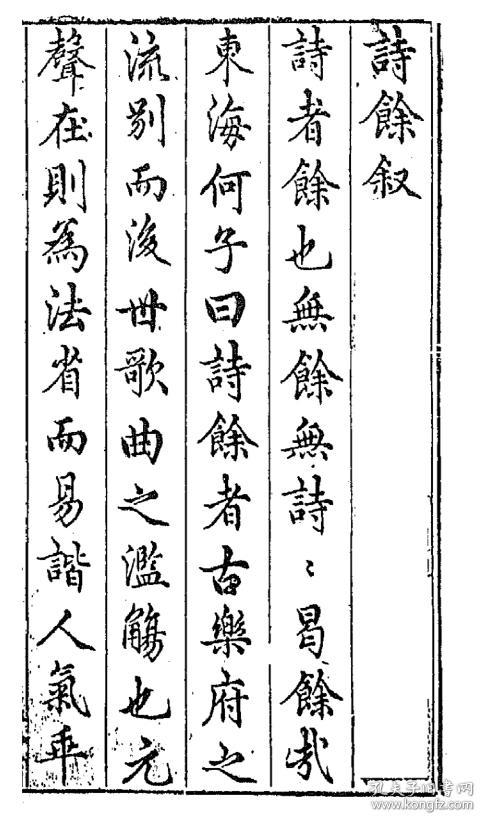 詩餘叙
詩者餘也無餘無詩〻曷餘哉
東海何子曰詩餘者古樂府之
流别而後世歌曲之濫觴也元
聲在則爲法省而易諧人氣乖
孔夫子旧书网
www.kongfz.com